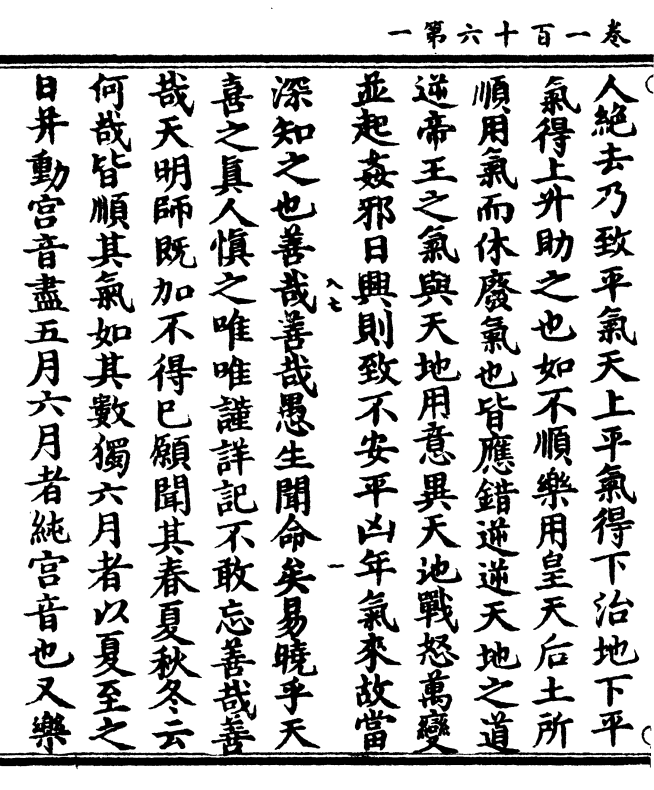 卷一百十六第一
人絶去乃致平氣天上平氣得下治地下平
氣得上升助之也如不順樂用皇天后土所
順用氣而休廢氣也皆應錯逆逆天地之道
逆帝王之氣與天地用意異天地戰怒萬變
並起姦邪日興則致不安平凶年氣來故當
深知之也善哉善哉愚生聞命矣易曉乎天
喜之真人慎之唯唯謹詳記不敢忘善哉善
哉天明師既加不得已願聞其春夏秋冬云
何哉皆順其氣如其數獨六月者以夏至之
日并動宮音盡五月六月者純宮音也又樂
入七
一